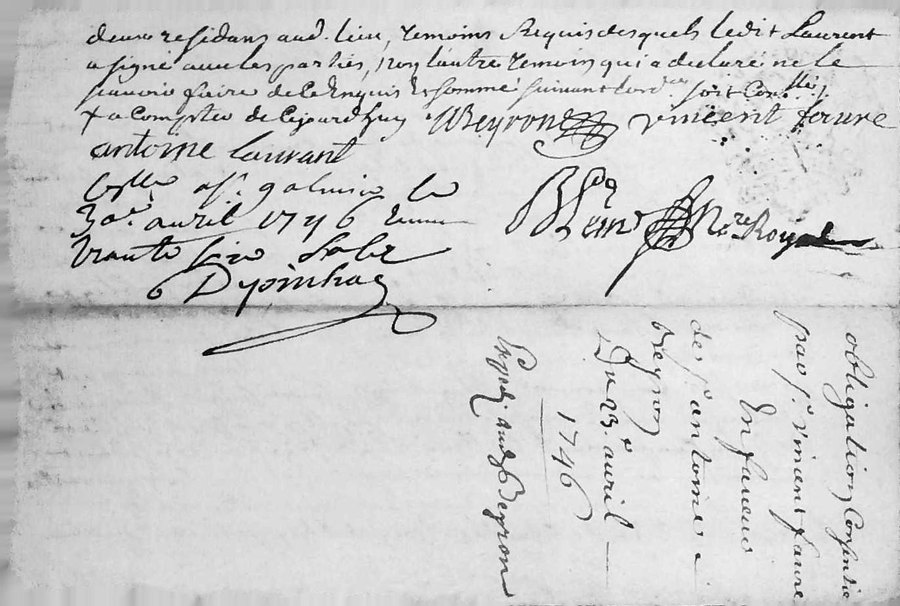 deux residans aud. lieu, temoins Requis desquels ledit Laurent
a signé avec les parties, non l'autre temoin qui a declaré ne le
savoir faire de ce Enquis et sommé suivant l'ord.ce soit Con.llé
+ a Compter de Cejourd'huy ABeyron vincent favre
antoine Laurant
Con.llé a St. galmier le
30e. avril 1746 Reçu
trante six sols
Dyoinhac
Not.re Royal
obligation Consentie
par Sr. vincent faure
En faveur
de sr. antoine
Beyron
Du 23e. avril
1746
Exped. aud. Beyron